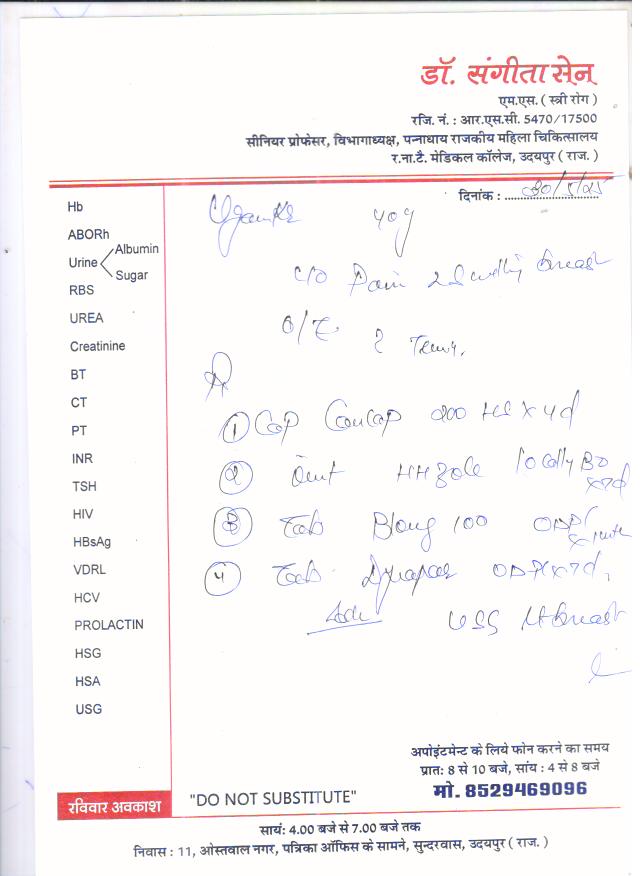 डॉ. संगीता सेन
एम.एस. ( स्त्री रोग )
रजि. नं. : आर.एस.सी. 5470/17500
सीनियर प्रोफेसर, विभागाध्यक्ष, पन्नाधाय राजकीय महिला चिकित्सालय
र.ना.टै. मेडिकल कॉलेज, उदयपुर ( राज. )
दिनांक : 30/5/25
Hb
ABORh
Urine Albumin
Sugar
RBS
UREA
Creatinine
BT
CT
PT
INR
TSH
HIV
HBsAg
VDRL
HCV
PROLACTIN
HSG
HSA
USG
40y
c/o Pain & Swelling breast
O/E ?
① Cap Cancap 200 HS x 4d
② Oint HHzole locally BD x7d
③ Tab Blong 100 OD
④ Tab Dynapar OD x7d
Adv USG breast
रविवार अवकाश
"DO NOT SUBSTITUTE"
अपोइंटमेन्ट के लिये फोन करने का समय
प्रात: 8 से 10 बजे, सांय : 4 से 8 बजे
मो. 8529469096
सायं: 4.00 बजे से 7.00 बजे तक
निवास : 11, ओस्तवाल नगर, पत्रिका ऑफिस के सामने, सुन्दरवास, उदयपुर ( राज. )